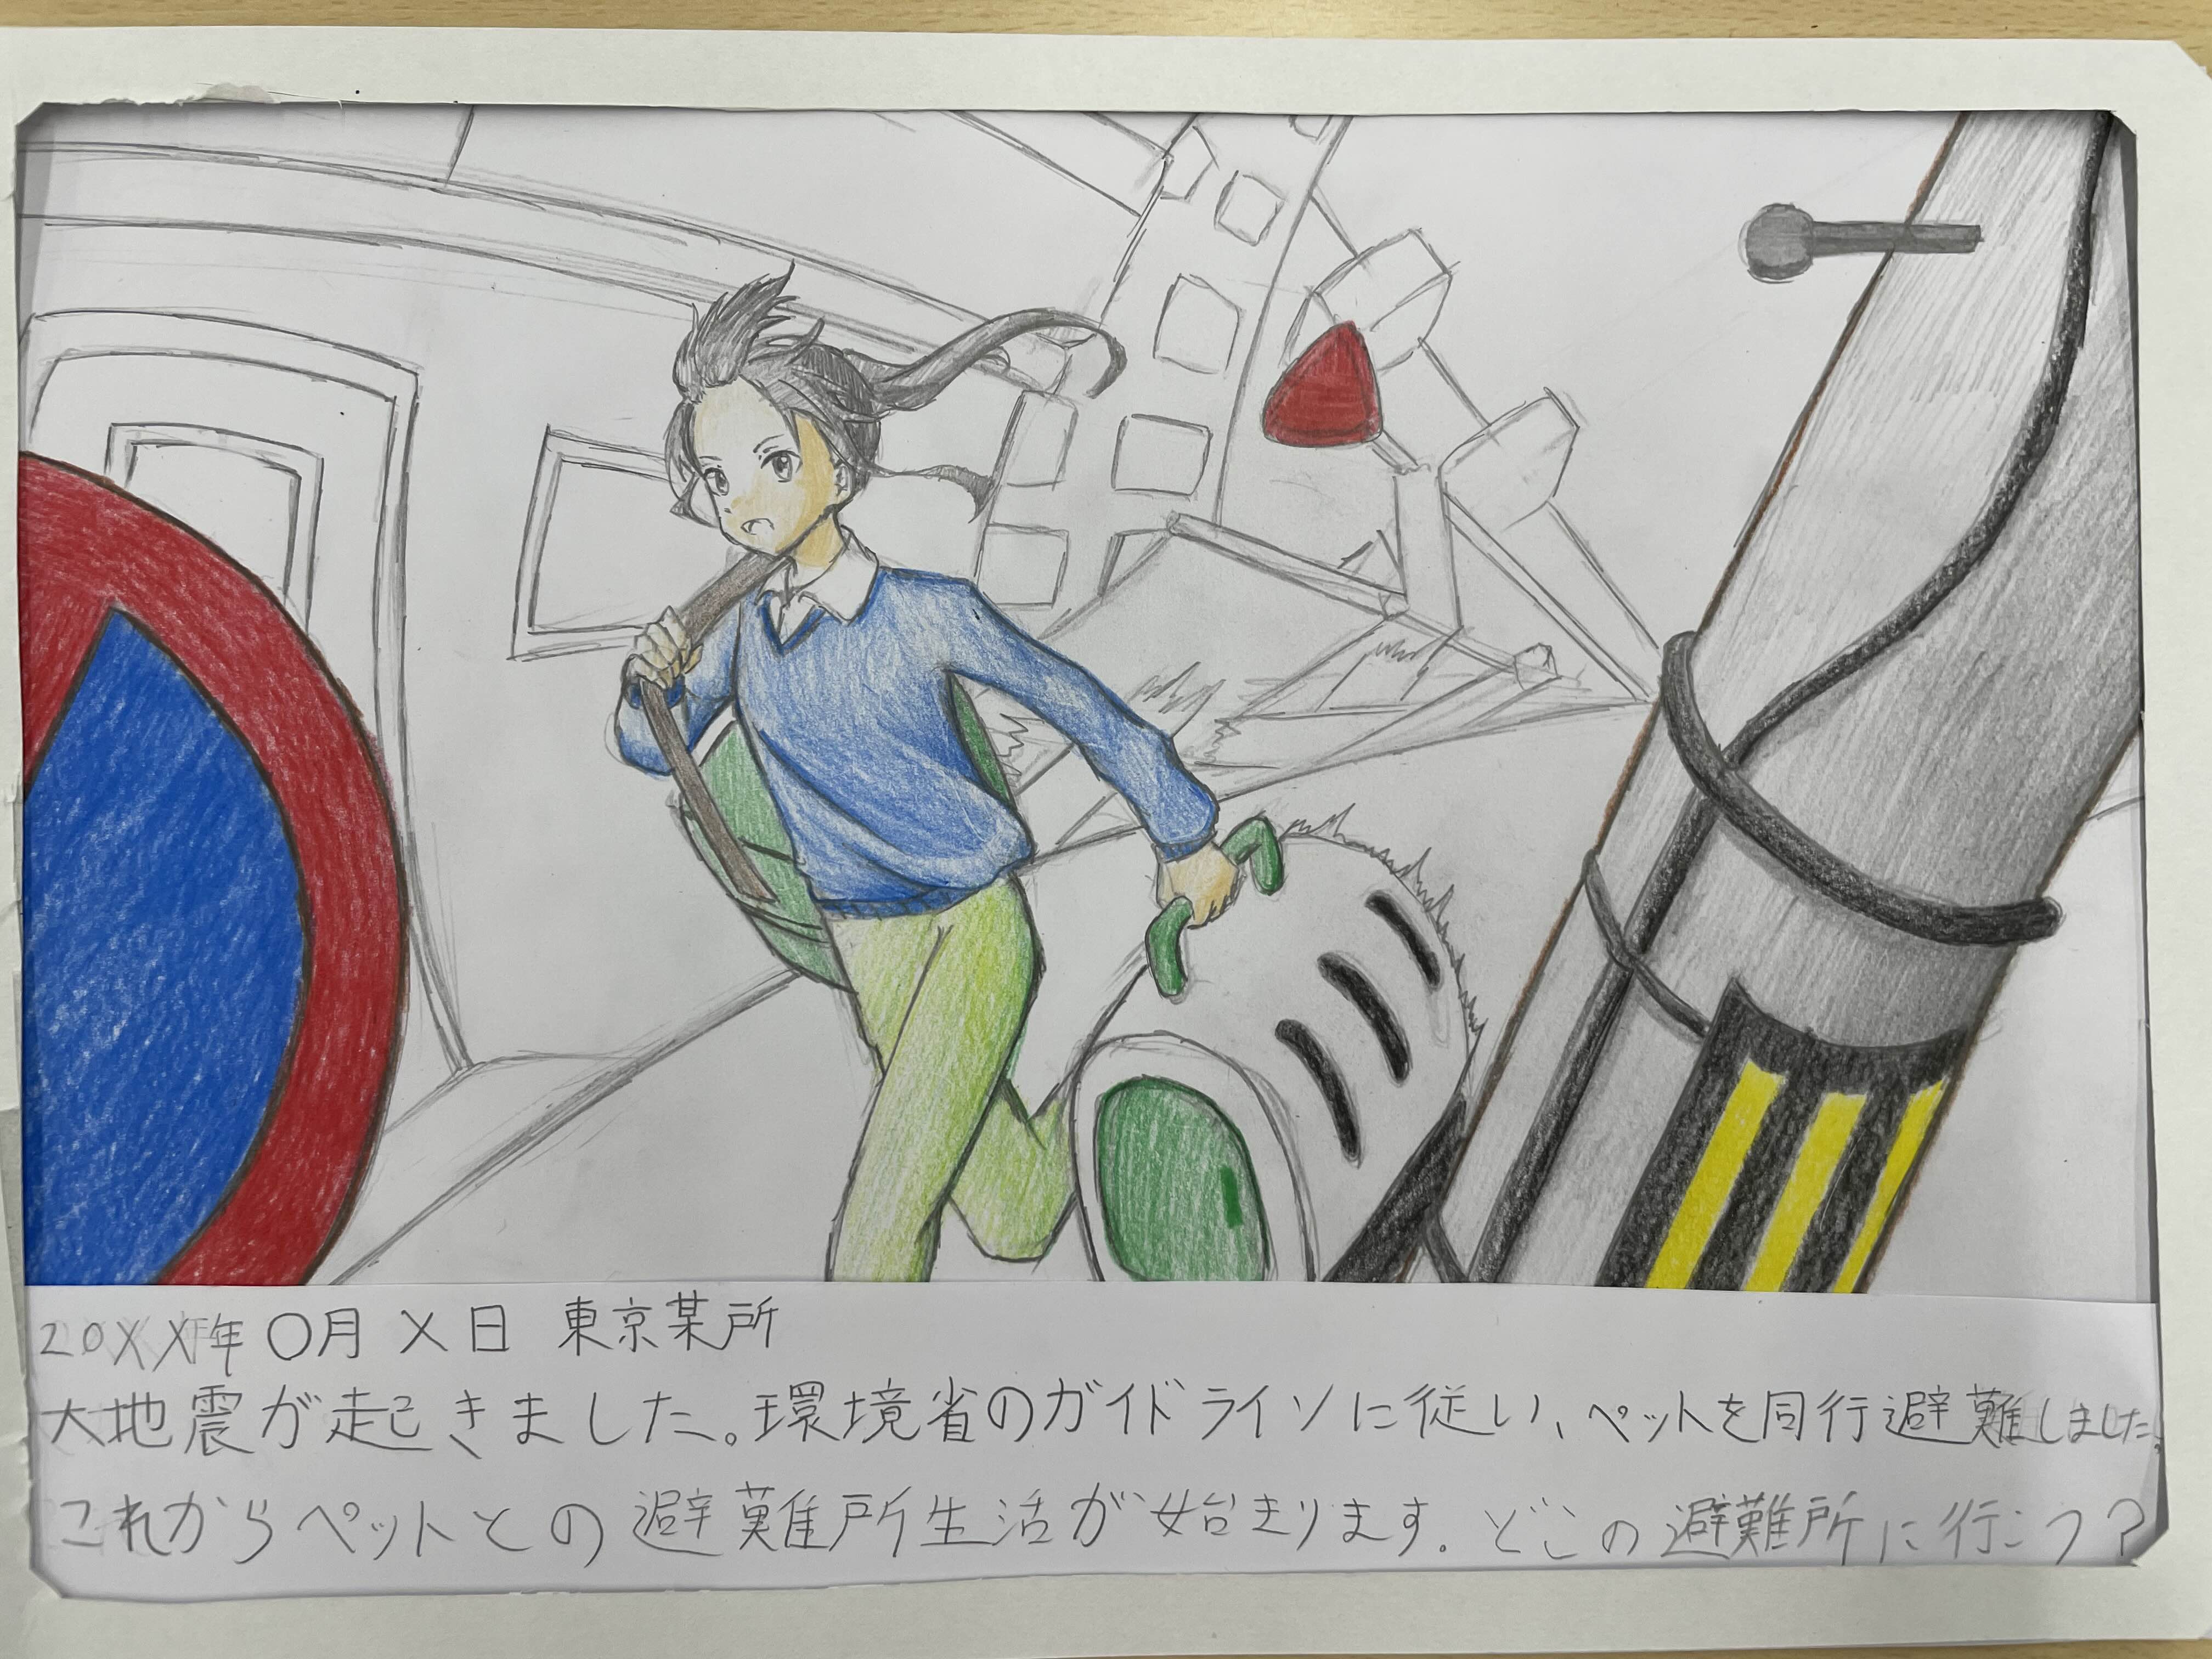 20XX年 〇月 X日 東京某所
大地震が起きました。環境省のガイドラインに従い、ペットを同行避難しました。
これからペットとの避難所生活が始まります。どこの避難所に行こう?